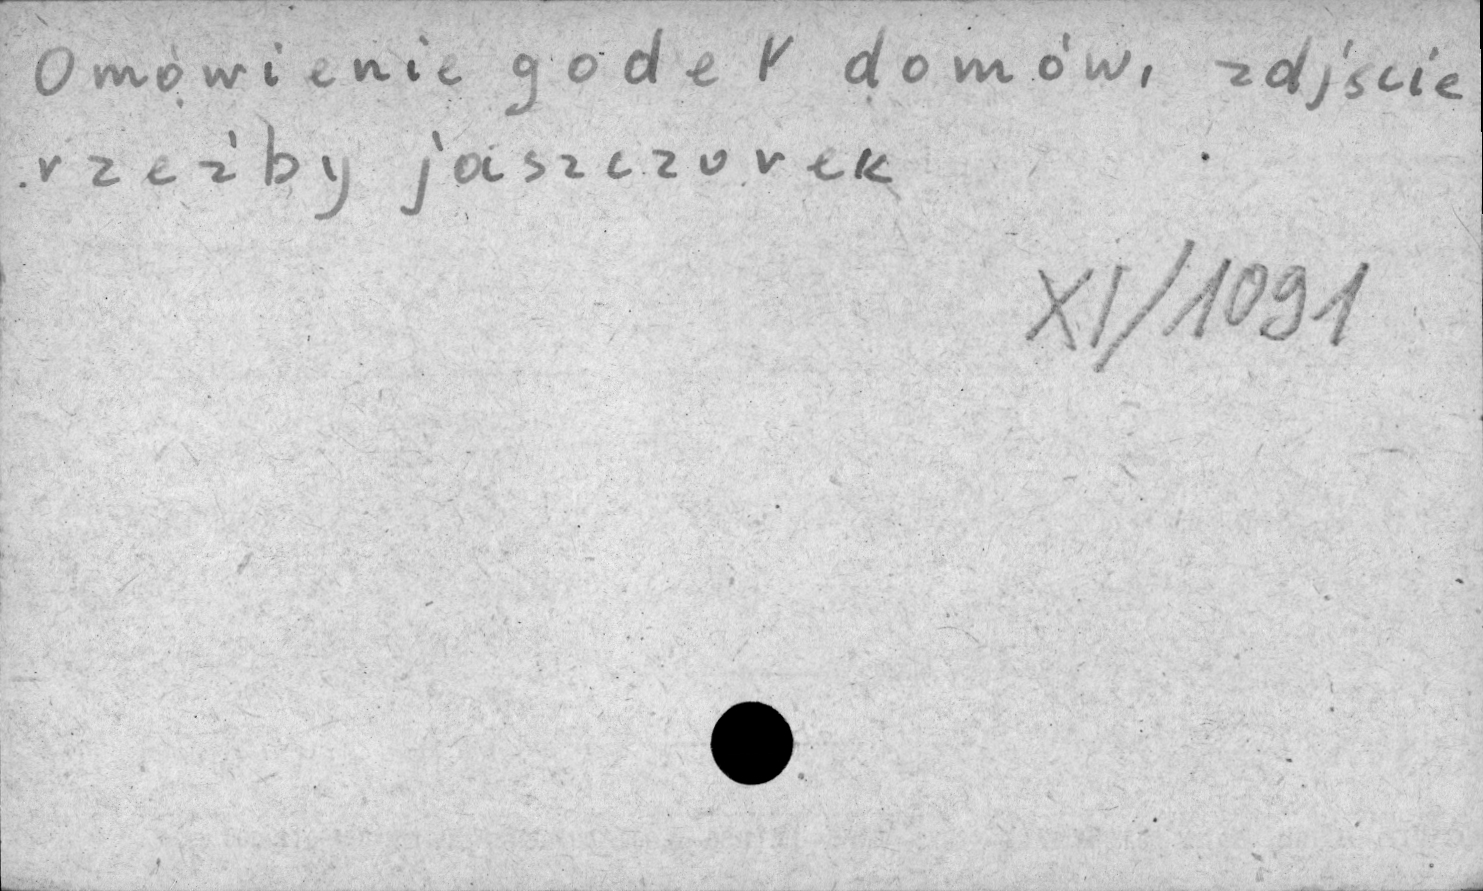 Omówienie godeł domów, zdjście
rzeźby jaszczurek
XI/1091